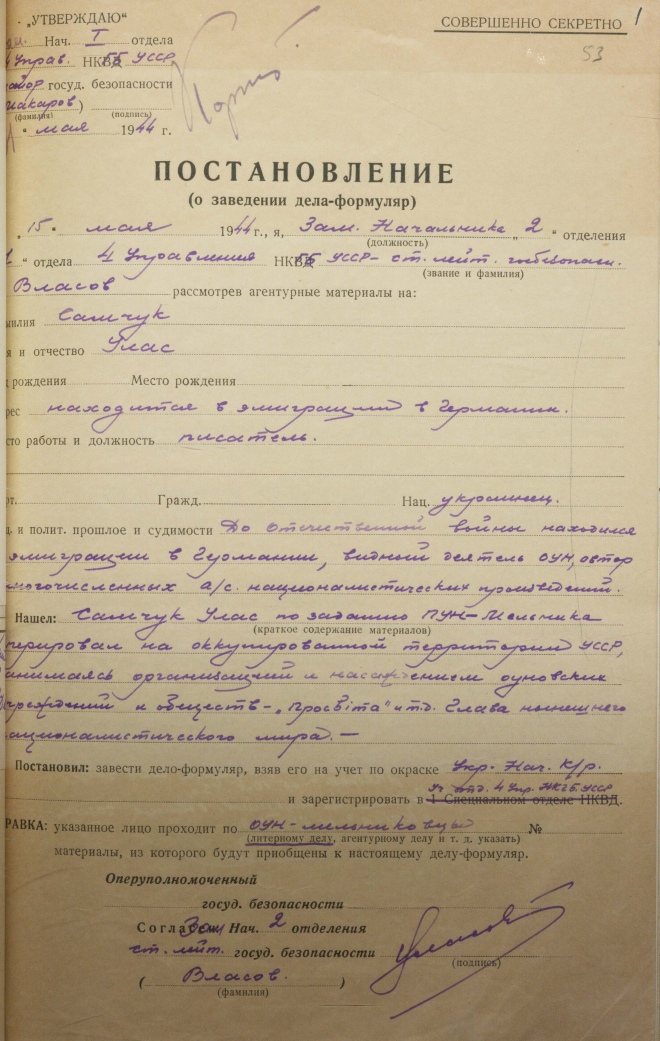 „УТВЕРЖДАЮ“
СОВЕРШЕННО СЕКРЕТНО 1
Нач. I отдела
53
4 Управ. НКГБ УССР
майор госуд. безопасности
(фамилия) (подпись)
" мая 1944 г.
ПОСТАНОВЛЕНИЕ
(о заведении дела-формуляр)
„ 15 " мая 1944 г., я, Зам. Начальника „ 2 “ отделения
(должность)
1 “ отдела 4 Управления НКГБ УССР - ст. лейт. госбезопасн.
(звание и фамилия)
Власов рассмотрев агентурные материалы на:
милия Самчук
я и отчество Улас
рождения Место рождения
рес находится в эмиграции в Германии.
сто работы и должность писатель.
рт. Гражд. Нац. украинец.
ц. и полит. прошлое и судимости До отечественной войны находился
эмиграции в Германии, видный деятель ОУН, автор
ногочисленных а/с. националистических произведений.
Нашел: Самчук Улас по заданию ПУН-Мельника
(краткое содержание материалов)
на оккупированной территории УССР,
анимаясь организацией и насаждением оуновских
чреждений и обществ - „Просвіта" и т.д. Глава нынешнего
ационалистического мира. —
Постановил: завести дело-формуляр, взяв его на учет по окраске Укр. Нац. К/р.
Уч. отд. 4 Упр. НКГБ УССР
и зарегистрировать в 1 Специальном отделе НКВД.
РАВКА: указанное лицо проходит по ОУН-мельниковцы №
(литерному делу, агентурному делу и т. д. указать)
материалы, из которого будут приобщены к настоящему делу-формуляр.
Оперуполномоченный
госуд. безопасности
Согласен Зам Нач. 2 отделения
ст. лейт. госуд. безопасности
(подпись)
( Власов. )
(фамилия)